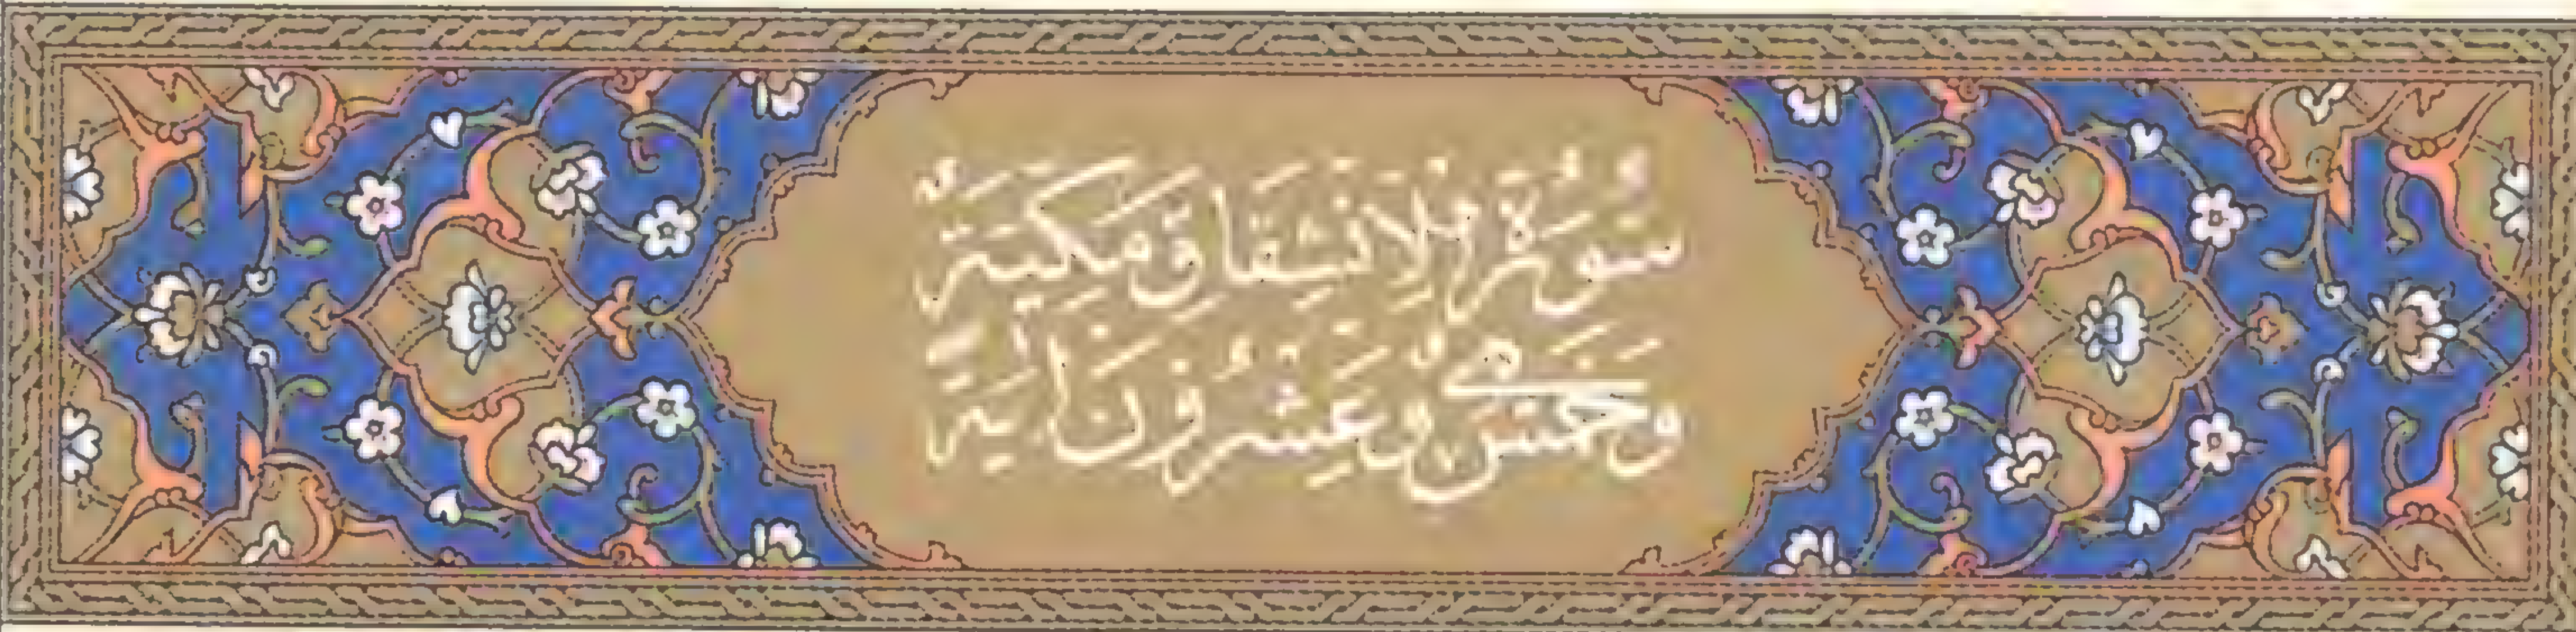 سُورَةُ الِانشِقَاقِ مَكِّيَّةٌ
وَخَمْسٌ وَعِشْرُونَ آيَةً